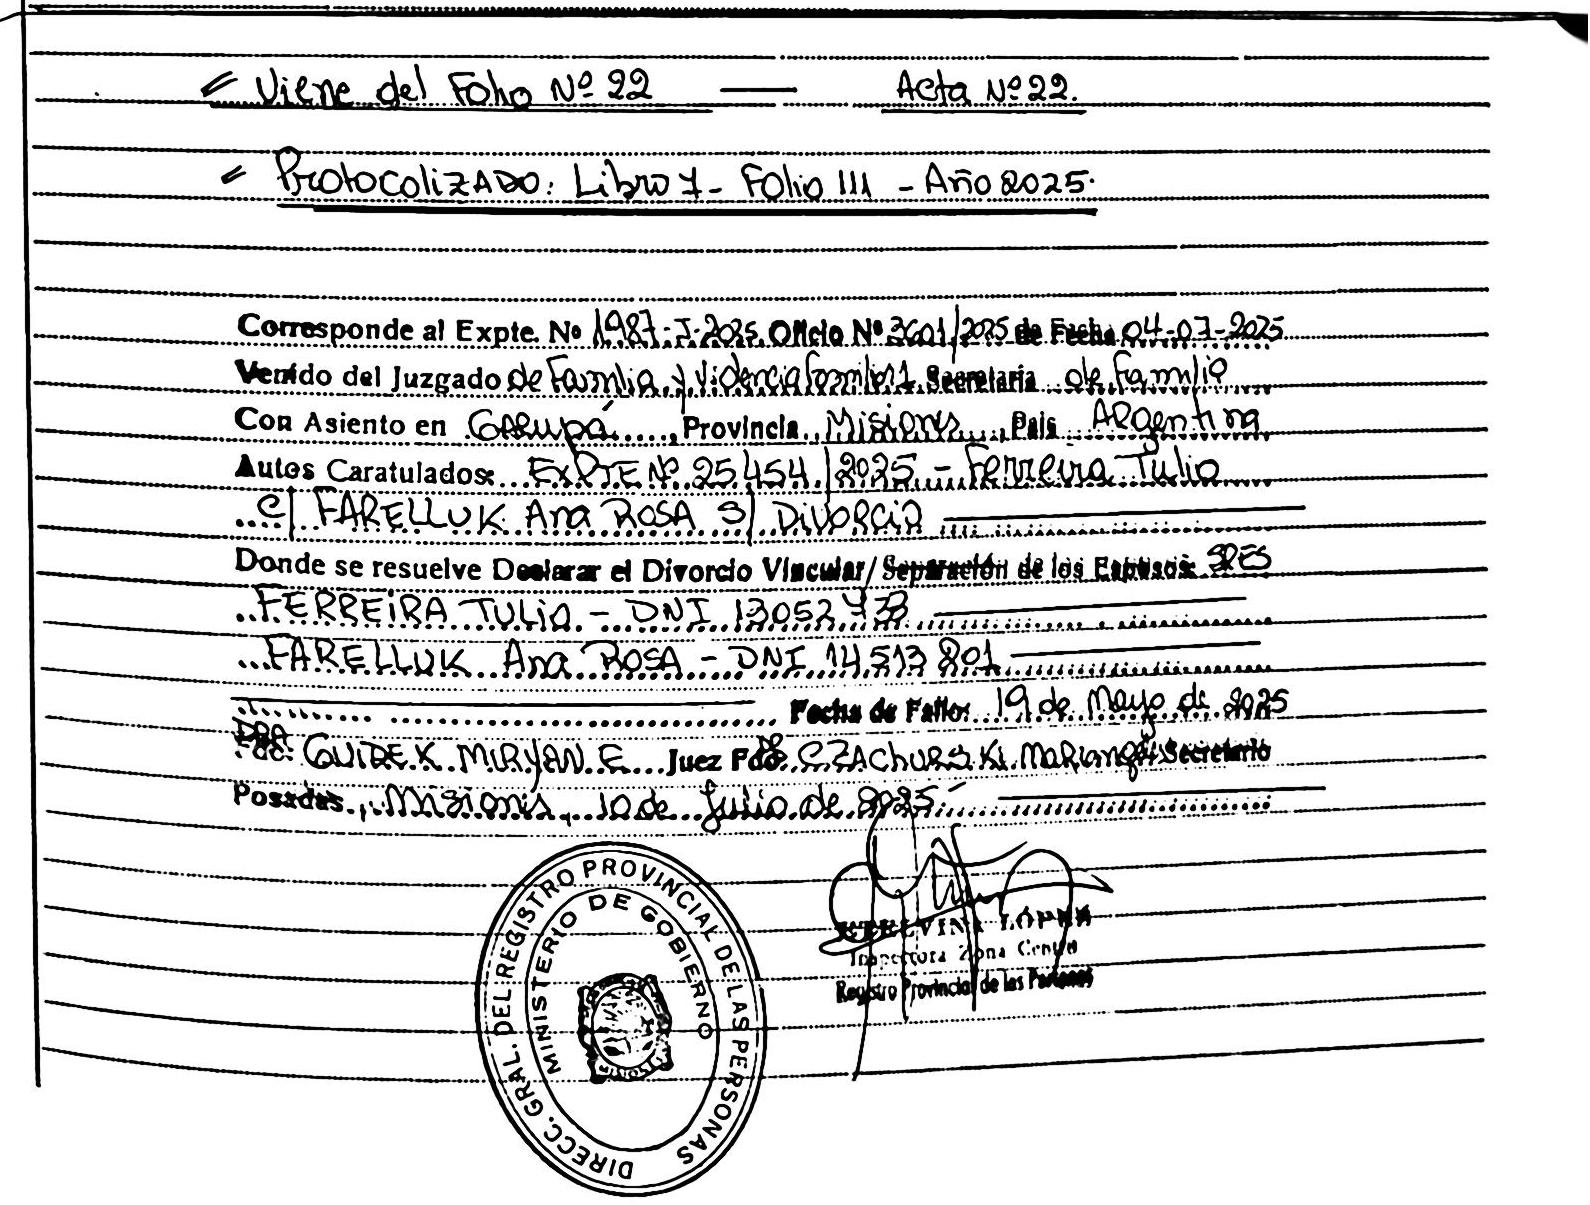 Viene del Folio Nº 22 — Acta Nº 22.
Protocolizado: Libro 1 - Folio 111 - Año 2025.
Corresponde al Expte. Nº 1987-J-2025 Oficio Nº 3601/2025 de Fecha 04-07-2025
Venido del Juzgado de Familia y Violencia Familiar 1 Secretaria de Familia
Con Asiento en Garupá, Provincia Misiones, Pais Argentina
Autos Caratulados: EXPTE Nº 25454/2025 - Ferreira Tulio
c/ FARELLUK Ana ROSA S/ DIVORCIO
Donde se resuelve Declarar el Divorcio Vincular/Separación de los Esposos: SRES
FERREIRA TULIO - DNI 13052
FARELLUK Ana ROSA - DNI 14 513 801
Fecha de Fallo: 19 de Mayo de 2025
DRA
Fdo: GUIDEK MIRYAN E. Juez Fdo: CZACHURSKI Mariangel Secretario
Posadas, Misiones, 10 de Julio de 2025
DIRECC. GRAL. DEL REGISTRO PROVINCIAL DE LAS PERSONAS
MINISTERIO DE GOBIERNO
ETELVINA LÓPEZ
Inspectora Zona Centro
Registro Provincial de las Personas